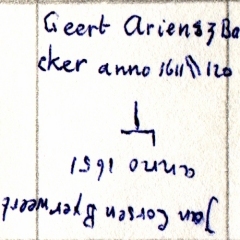 Geert Ariensz Ba
cker anno 1611 \\ 120
anno 1651
Jan Corsen Byerweert